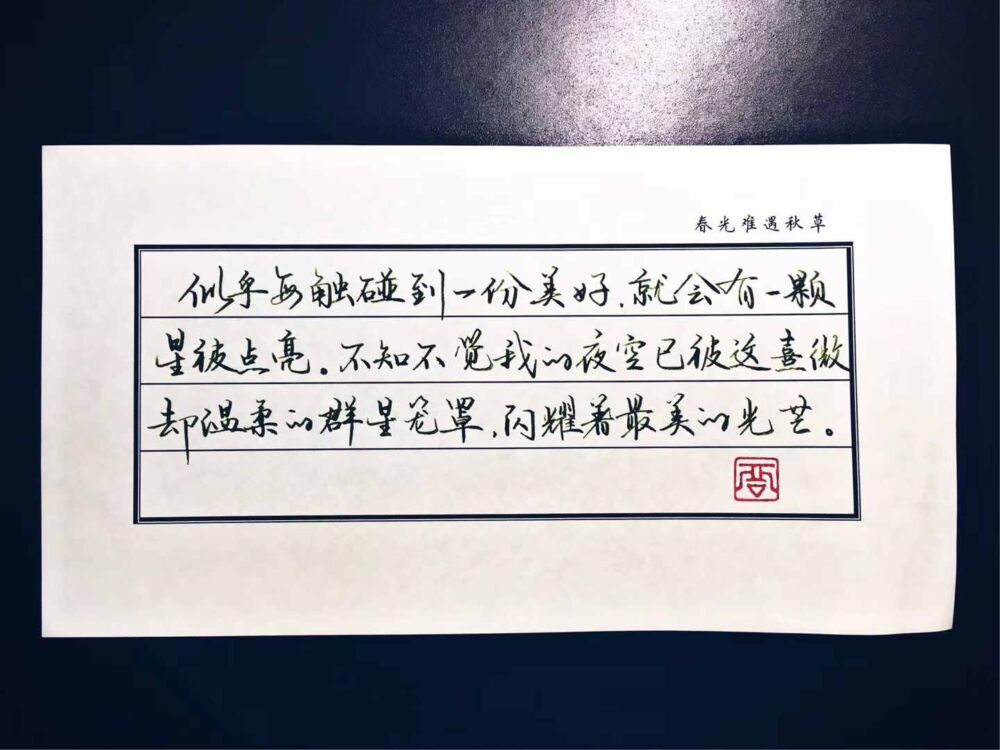 春光难遇秋草
似乎每触碰到一份美好,就会有一颗
星被点亮。不知不觉我的夜空已被这熹微
却温柔的群星笼罩,闪耀着最美的光芒。